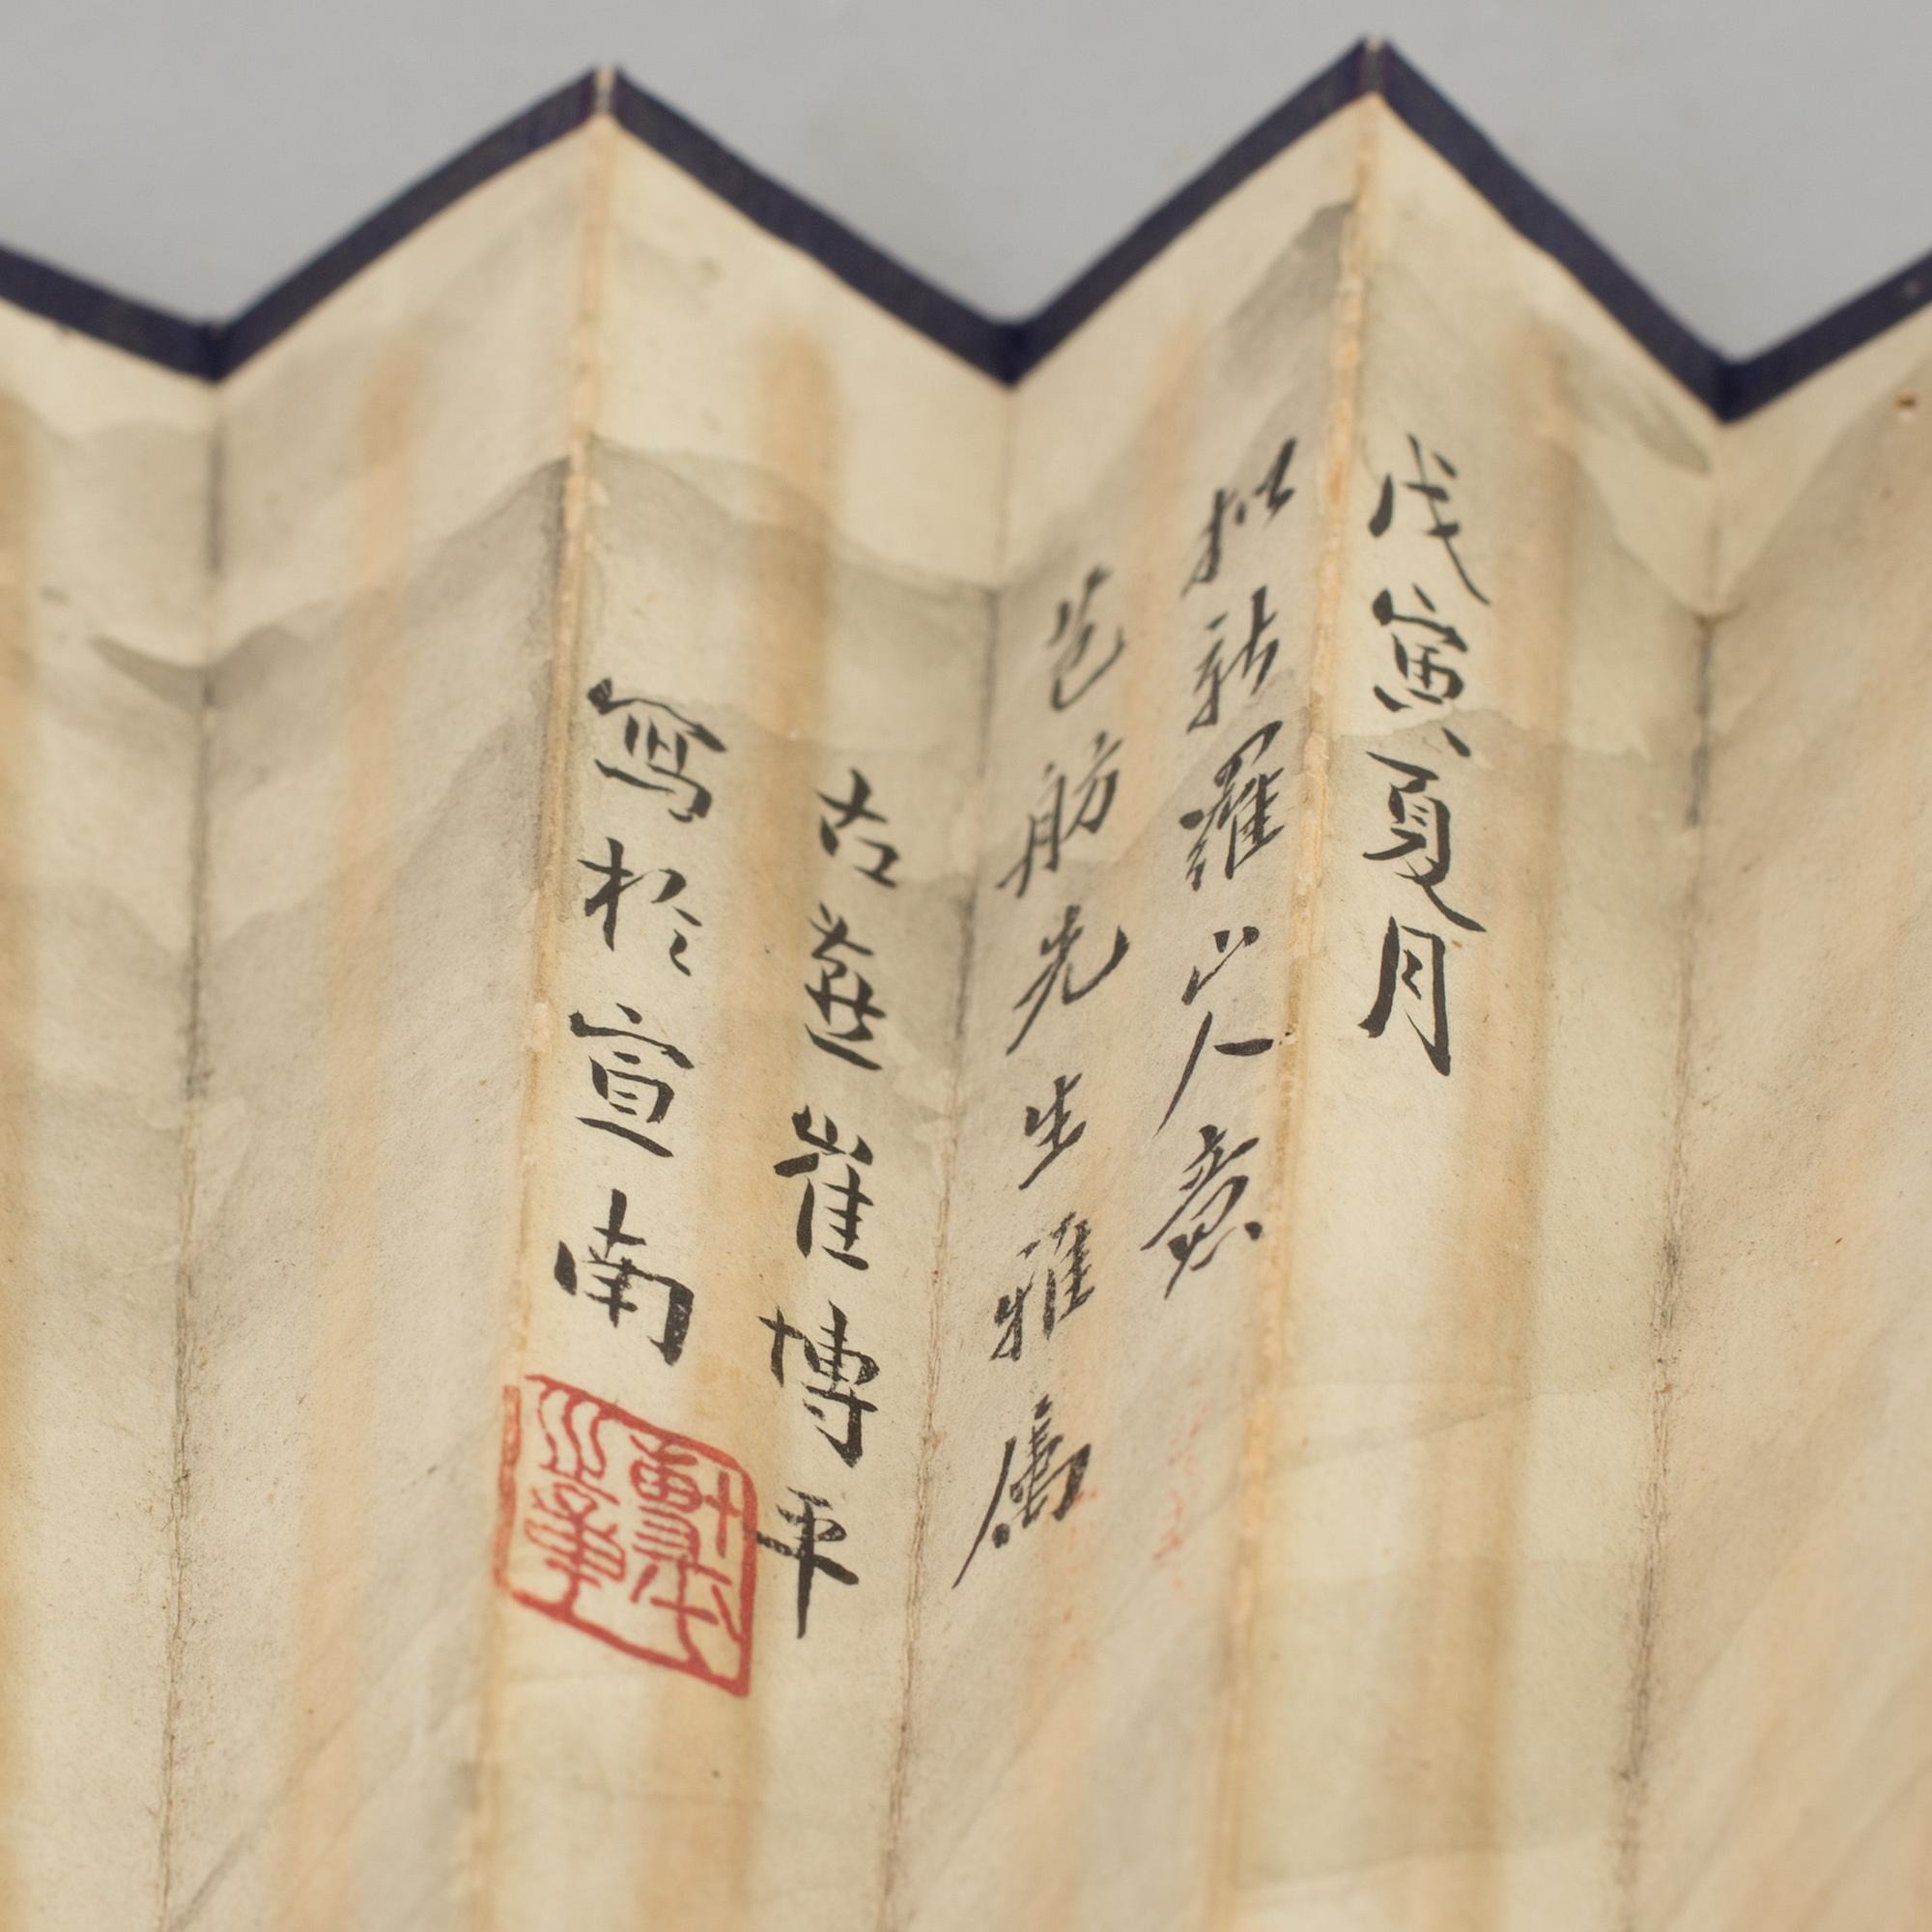 戊寅夏月
拟新羅山人意
芑舫先生雅屬
古燕崔博平
寫於宣南